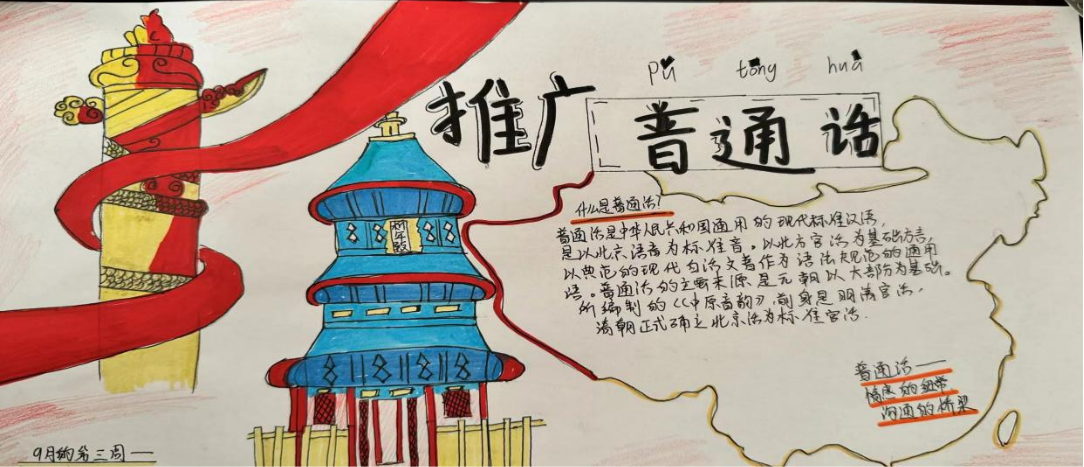 pǔ tōng huà
推广普通话
什么是普通话?
普通话是中华人民共和国通用的现代标准汉语,
是以北京语音为标准音。以北方官话为基础方言,
以典范的现代白话文著作为语法规范的通用
语。普通话的主要来源是元朝以大都话为基础。
所编制的《中原音韵》,前身是明清官话,
清朝正式确立北京话为标准官话.
普通话——
情感的纽带
沟通的桥梁
祈年殿
9月的第三周—